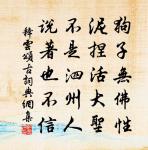 狗子無佛性
泥捏活大聖
不是泗州人
說著也不信
釋雲頌古詞典網集